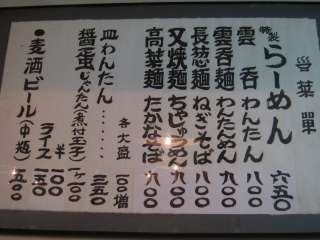 営業單
特製らーめん 六五〇
雲呑 わんたん 八〇〇
雲呑麺 わんためん 九〇〇
長葱麺 ねぎそば 八〇〇
叉焼麺 ちゃしゅうめん 九〇〇
高菜麺 たかなそば 八〇〇
各大盛 一〇〇増
皿わんたん…… 三五〇
醤蛋 じゃんたん(煮付玉子) 一ヶ 一〇〇
ライス 一五〇
半 一〇〇
●麦酒ビール(中瓶) 五〇〇